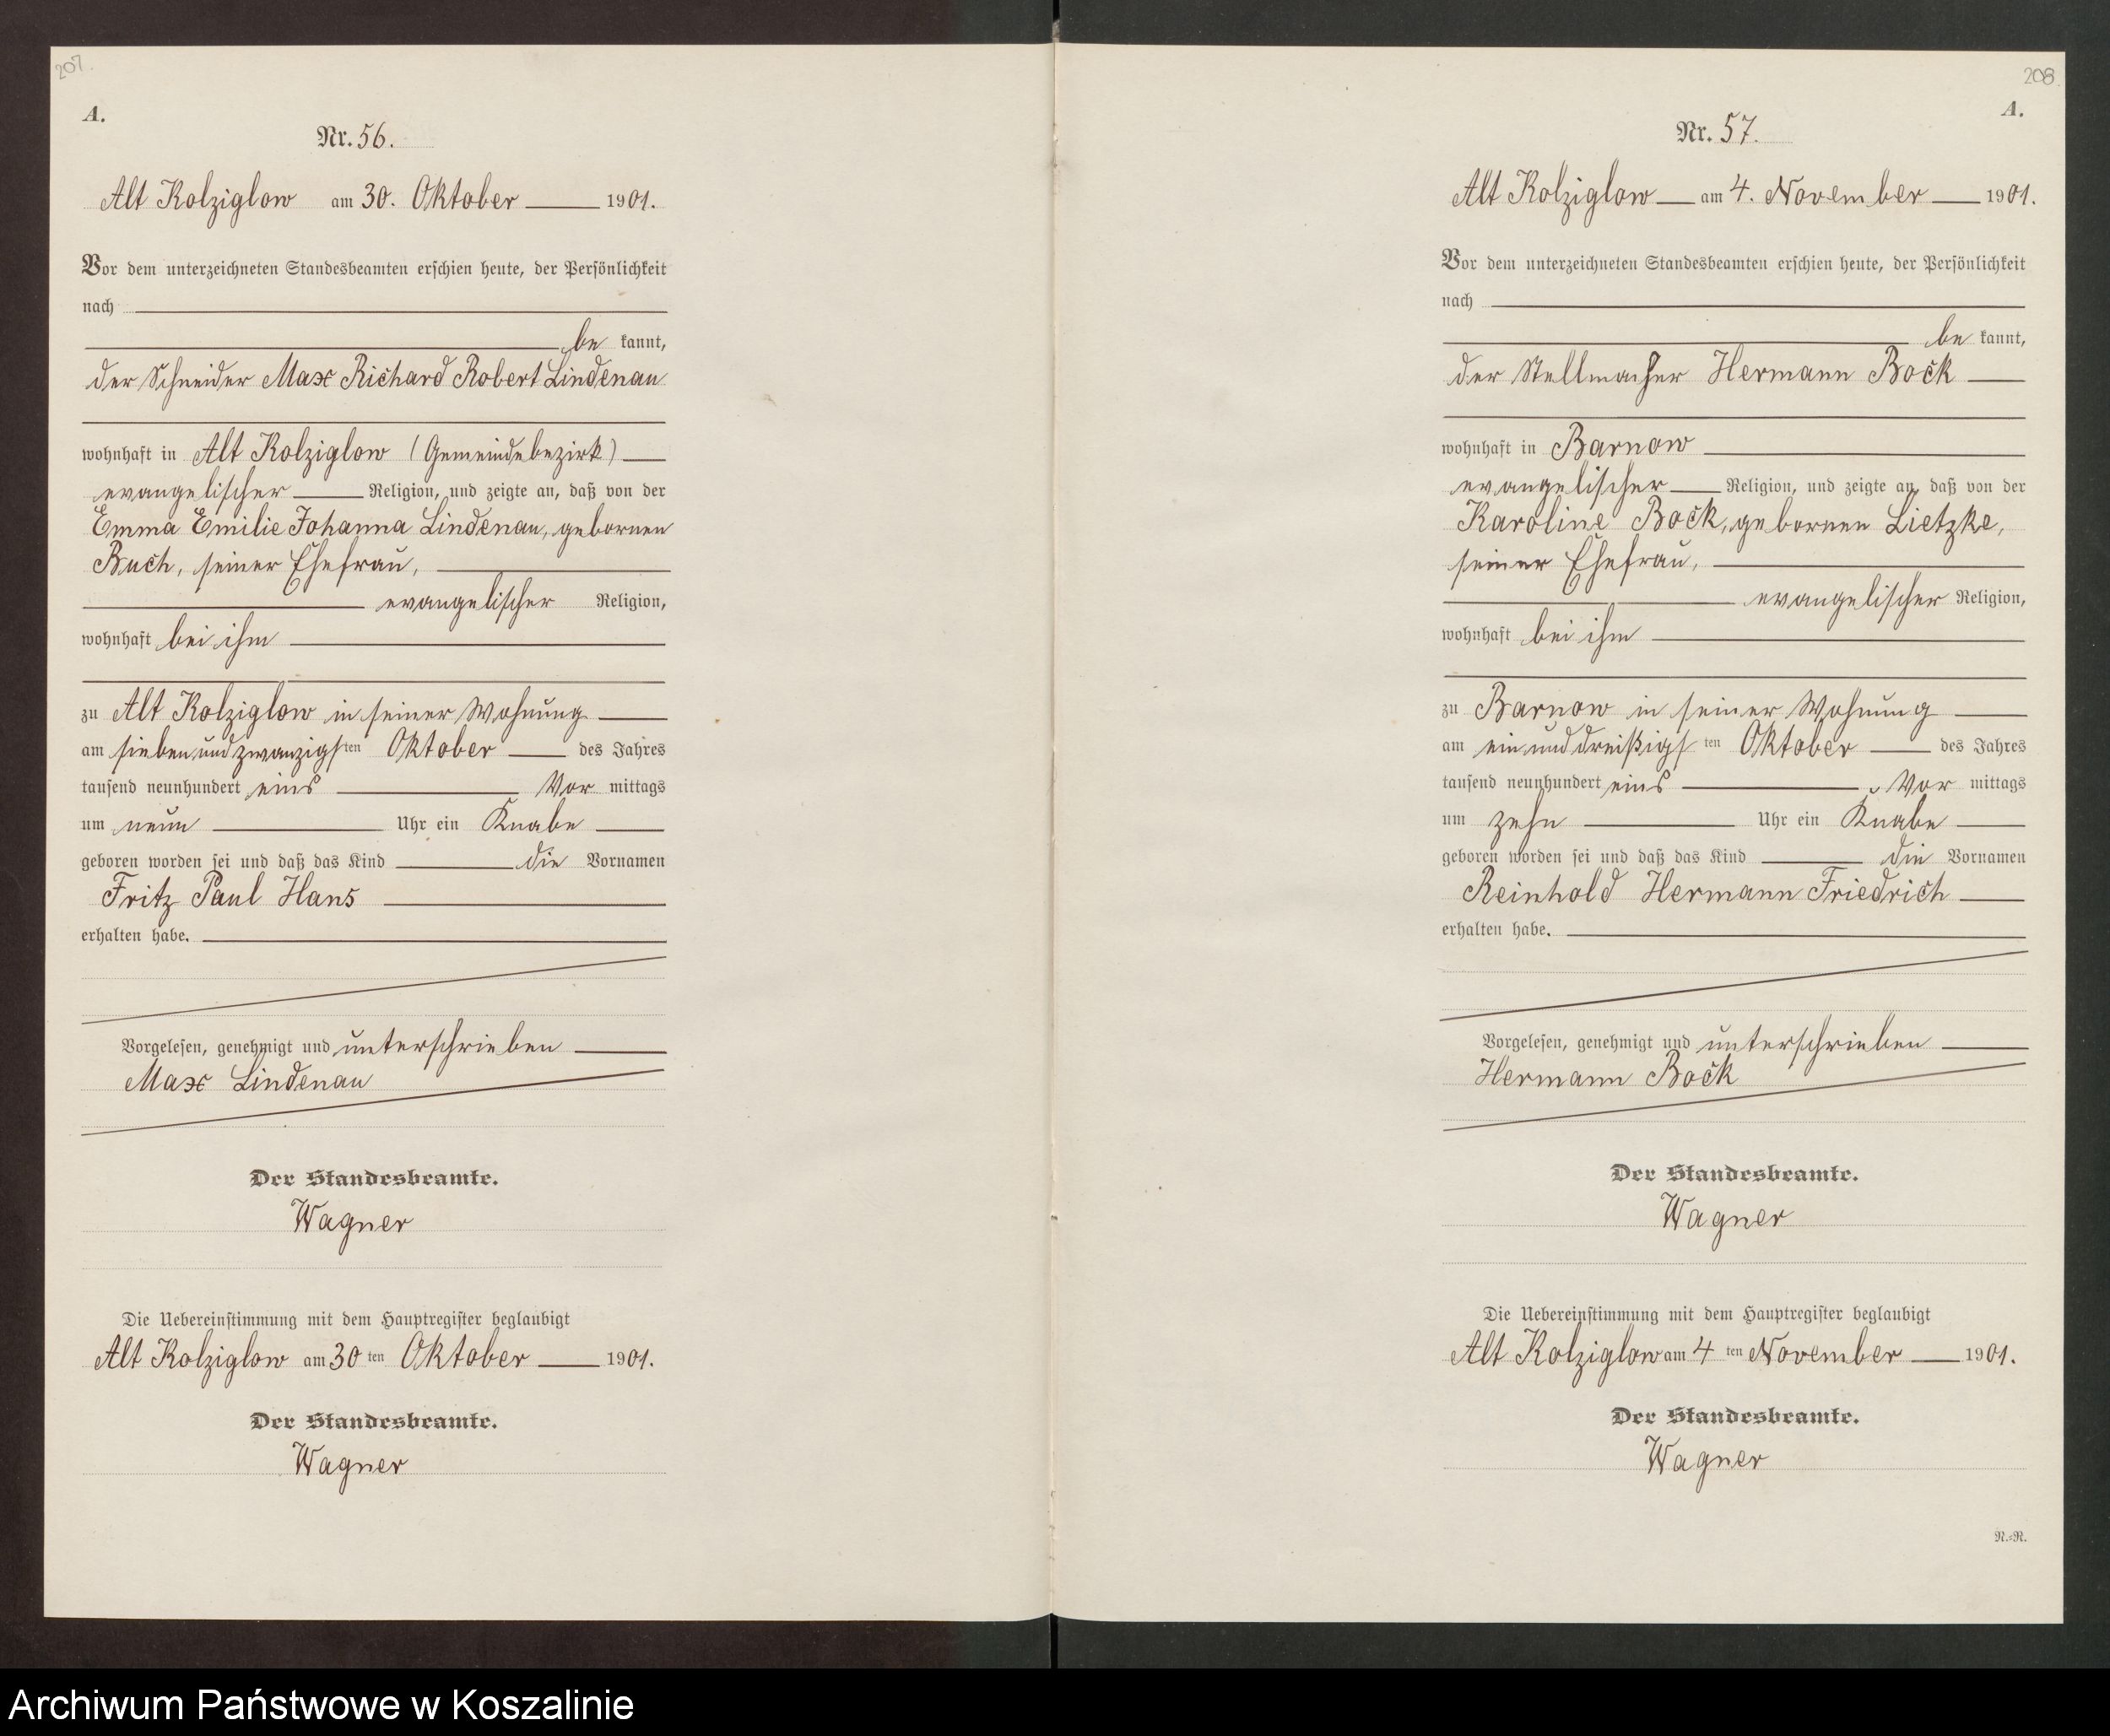 207.
A.
Nr. 56.
Alt Kolziglow am 30. Oktober 1901.
Vor dem unterzeichneten Standesbeamten erschien heute, der Persönlichkeit
nach
be kannt,
der Schneider Max Richard Robert Lindenau
wohnhaft in Alt Kolziglow (Gemeindebezirk)
evangelischer Religion, und zeigte an, daß von der
Emma Emilie Johanna Lindenau, gebornen
Buch, seiner Ehefrau,
evangelischer Religion,
wohnhaft bei ihm
zu Alt Kolziglow in seiner Wohnung
am siebenundzwanzigsten Oktober des Jahres
tausend neunhundert eins Vor mittags
um neun Uhr ein Knabe
geboren worden sei und daß das Kind die Vornamen
Fritz Paul Hans
erhalten habe.
Vorgelesen, genehmigt und unterschrieben
Max Lindenau
Der Standesbeamte.
Wagner
Die Uebereinstimmung mit dem Hauptregister beglaubigt
Alt Kolziglow am 30 ten Oktober 1901.
Der Standesbeamte.
Wagner
208
A.
Nr. 57.
Alt Kolziglow am 4. November 1901.
Vor dem unterzeichneten Standesbeamten erschien heute, der Persönlichkeit
nach
be kannt,
der Stellmacher Hermann Bock
wohnhaft in Barnow
evangelischer Religion, und zeigte an, daß von der
Karoline Bock, gebornen Lietzke,
seiner Ehefrau,
evangelischer Religion,
wohnhaft bei ihm
zu Barnow in seiner Wohnung
am einunddreißigs ten Oktober des Jahres
tausend neunhundert eins Vor mittags
um zehn Uhr ein Knabe
geboren worden sei und daß das Kind die Vornamen
Reinhold Hermann Friedrich
erhalten habe.
Vorgelesen, genehmigt und unterschrieben
Hermann Bock
Der Standesbeamte.
Wagner
Die Uebereinstimmung mit dem Hauptregister beglaubigt
Alt Kolziglow am 4 ten November 1901.
Der Standesbeamte.
Wagner
N.-R.
Archiwum Państwowe w Koszalinie